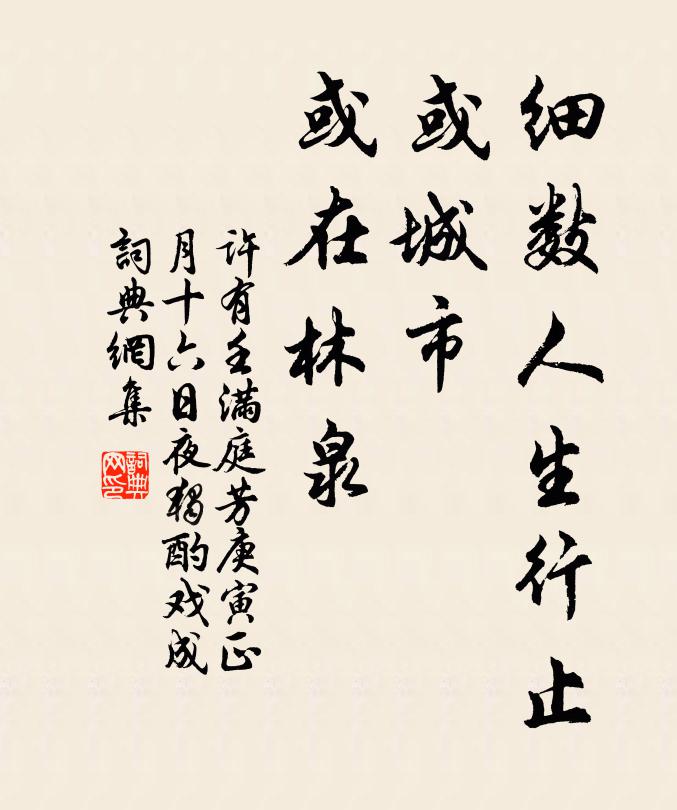 细数人生行止
或城市
或在林泉
许有壬满庭芳庚寅正
月十六日夜独酌戏成
詞典網集
詞典网印